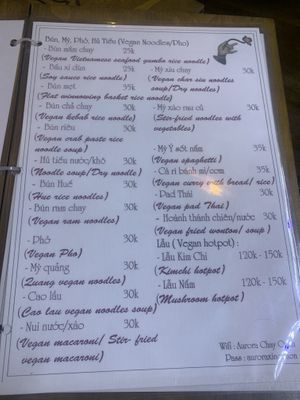 Bún, Mỳ, Phở, Hủ Tiếu (Vegan Noodles/Pho)
- Bún mắm chay 25k
(Vegan Vietnamese seafood gumbo rice noodles)
- Bầu xì dùn 25k
(Soy sauce rice noodles)
- Bún mẹt 35k
(Flat winnowing basket rice noodles)
- Bún chả chay 30k
(Vegan kebab rice noodles)
- Bún riêu 30k
(Vegan crab paste rice noodle soup)
- Hủ tiếu nước/khô 30k
(Noodle soup/Dry noodle)
- Bún Huế 30k
(Hue rice noodles)
- Bún nem chay 30k
(Vegan nem noodles)
- Phở 30k
(Vegan Pho)
- Mỳ quảng 30k
(Quang vegan noodles)
- Cao lầu 30k
(Cao lau vegan noodles soup)
- Nui nước/xào 30k
(Vegan macaroni/ Stir-fried vegan macaroni)
- Mỳ xíu chay 30k
(Vegan char siu noodles soup/Dry noodles)
- Mỳ xào rau củ 30k
(Stir-fried noodles with vegetables)
- Mỳ Ý sốt nấm 35k
(Vegan spaghetti)
- Cà ri bánh mì/cơm 35k
(Vegan curry with bread/ rice)
- Pad Thái 30k
(Vegan pad Thai)
- Hoành thánh chiên/nước 30k
(Vegan fried wonton/ soup)
Lẩu (Vegan hotpot) :
- Lẩu Kim Chi 120k - 150k
(Kimchi hotpot)
- Lẩu Nấm 120k - 150k
(Mushroom hotpot)
Wifi : Aurora Chay
Pass :